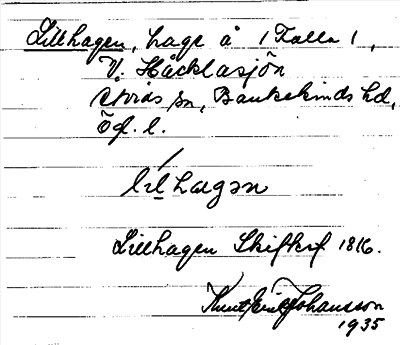 Lillhagen, hage å 1 Kalla 1,
V. Håcklasjön
Etvids sn, Bankekinds hd,
Ög. l.
lílhagən
Lillhagen Skifteskf 1816.
Knut Erik Johansson
1935